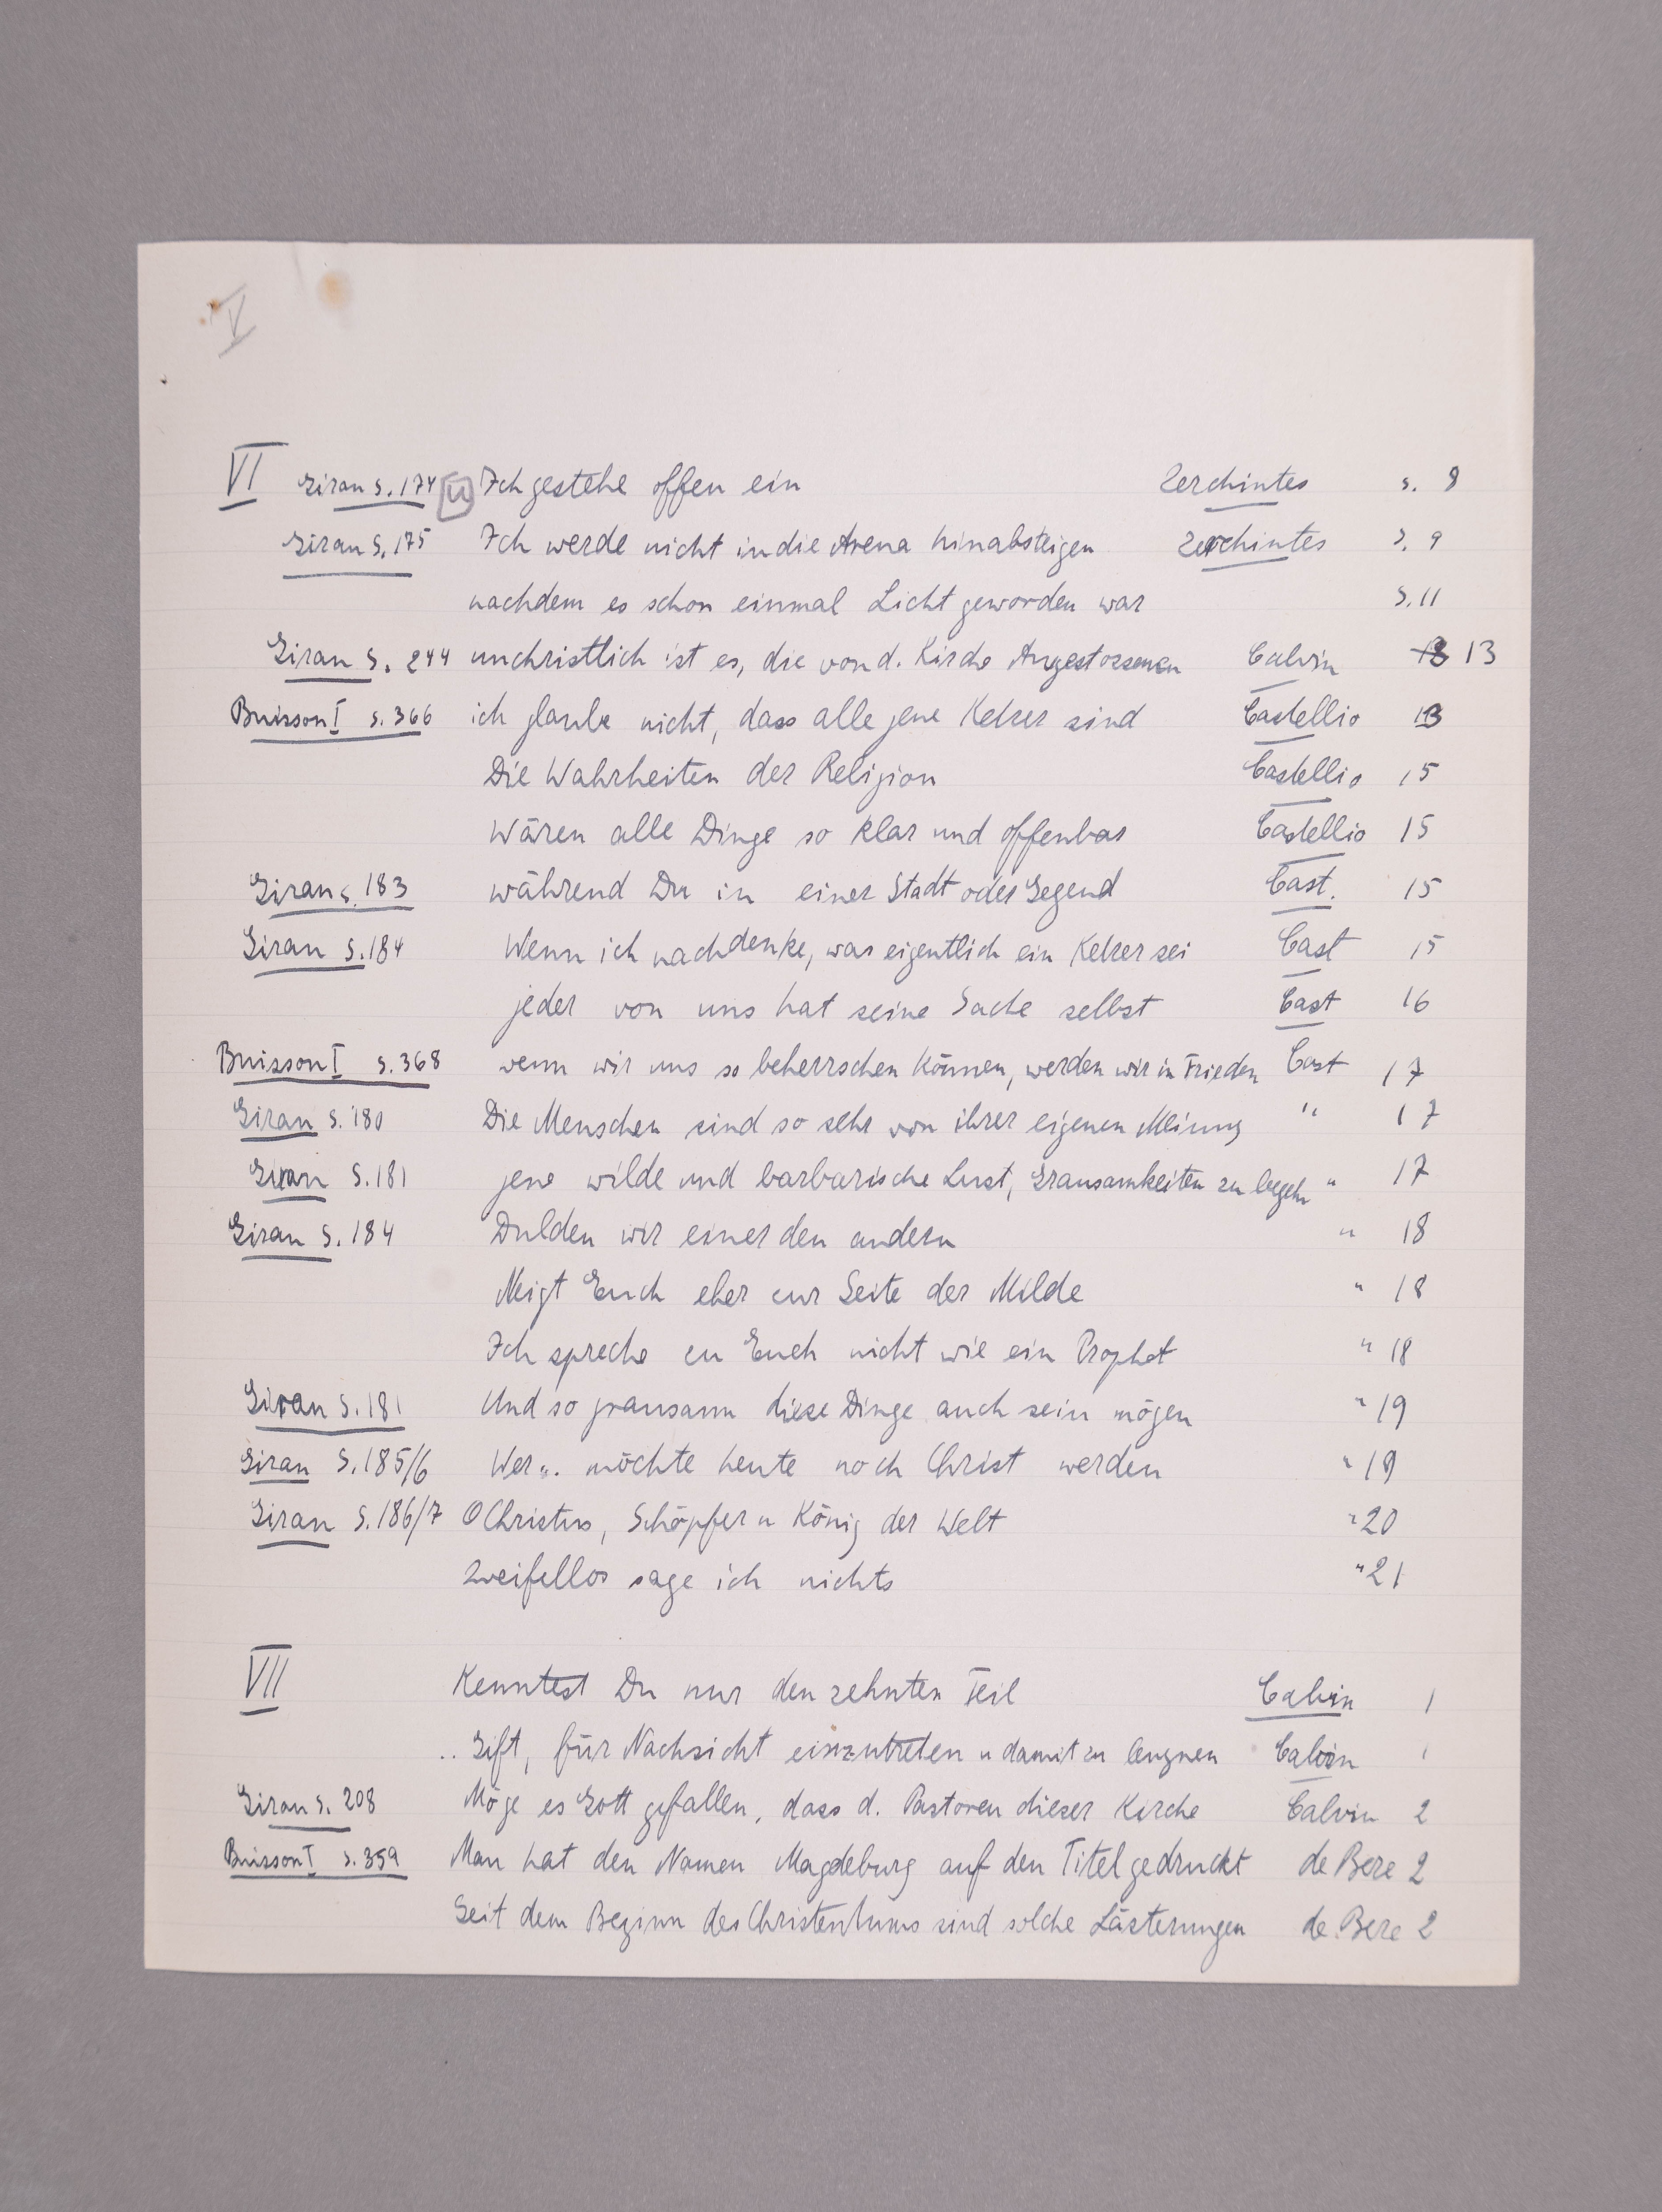 V
VI Giran S. 174 ü Ich gestehe offen ein Zerchintes s. 8
Giran S. 175 Ich werde nicht in die Arena hinabsteigen Zerchintes S. 9
nachdem es schon einmal Licht geworden war S. 11
Giran S. 244 unchristlich ist es, die von d. Kirche Ausgestossenen Calvin 13
Buisson I s. 366 ich glaube nicht, dass alle jene Ketzer sind Castellio 13
Die Wahrheiten der Religion Castellio 15
Wären alle Dinge so klar und offenbar Castellio 15
Giran s. 183 während Du in einer Stadt oder Gegend Cast. 15
Giran S. 184 Wenn ich nachdenke, was eigentlich ein Ketzer sei Cast 15
jeder von uns hat seine Sache selbst Cast 16
Buisson I s. 368 wenn wir uns so beherrschen können, werden wir in Frieden Cast 17
Giran S. 180 Die Menschen sind so sehr von ihrer eigenen Meinung " 17
Giran S. 181 jene wilde und barbarische Lust, Grausamkeiten zu begehn " 17
Giran S. 184 Dulden wir einer den andern " 18
Neigt Euch eher zur Seite der Milde " 18
Ich spreche zu Euch nicht wie ein Prophet " 18
Giran S. 181 Und so grausam diese Dinge auch sein mögen " 19
Giran S. 185/6 Wer ... möchte heute noch Christ werden " 19
Giran S. 186/7 O Christus, Schöpfer u König der Welt " 20
Zweifellos sage ich nichts " 21
VII Kenntest Du nur den zehnten Teil Calvin 1
.. Gift, für Nachsicht einzutreten u damit zu leugnen Calvin 1
Giran S. 208 Möge es Gott gefallen, dass d. Pastoren dieser Kirche Calvin 2
Buisson I S. 359 Man hat den Namen Magdeburg auf den Titel gedruckt de Beze 2
Seit dem Beginn des Christentums sind solche Lästerungen de Beze 2